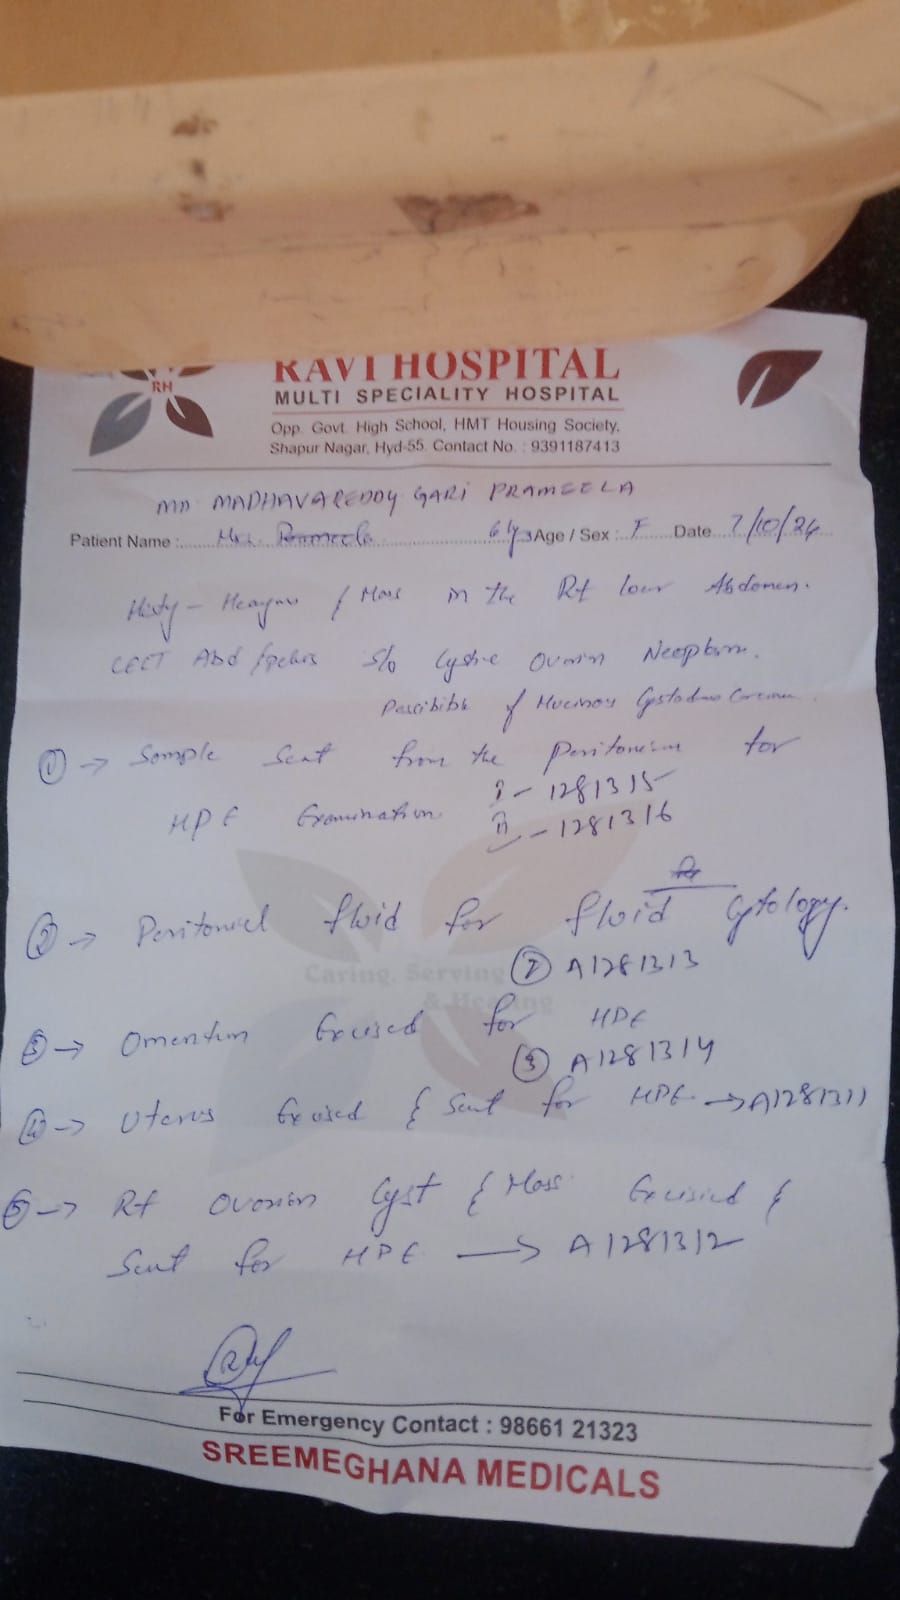 RH
RAVI HOSPITAL
MULTI SPECIALITY HOSPITAL
Opp. Govt. High School, HMT Housing Society,
Shapur Nagar, Hyd-55. Contact No. : 9391187413
MADHAVAREDDY GARI PRAMEELA
Patient Name : Mrs. Prameela 61ys Age / Sex : F Date 7/10/24
Histy - of Mass in the Rt lower Abdomen.
CECT Abd/pelvis s/o Cystic Ovarian Neoplasm.
of Mucinous
① → Sample Sent from the Peritoneum for
I - 1281315
HPE Examination
II - 1281316
② → Peritonial fluid for fluid Cytology.
② A1281313
Caring, Serving
& Healing
③ → Omentum Excised for HPE
③ A1281314
④ → Uterus Excised & Sent for HPE → A1281311
⑤ → Rt Ovarian Cyst & Mass Excisied &
Sent for HPE → A1281312
For Emergency Contact : 98661 21323
SREEMEGHANA MEDICALS